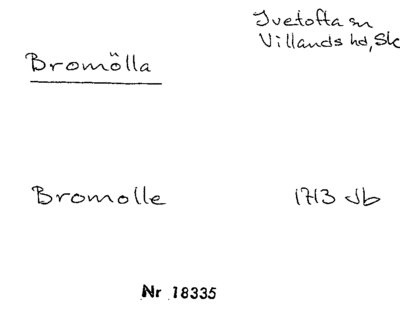 Ivetofta sn
Villands hd, Sk
Bromölla
Bromolle 1713 Jb
Nr 18335